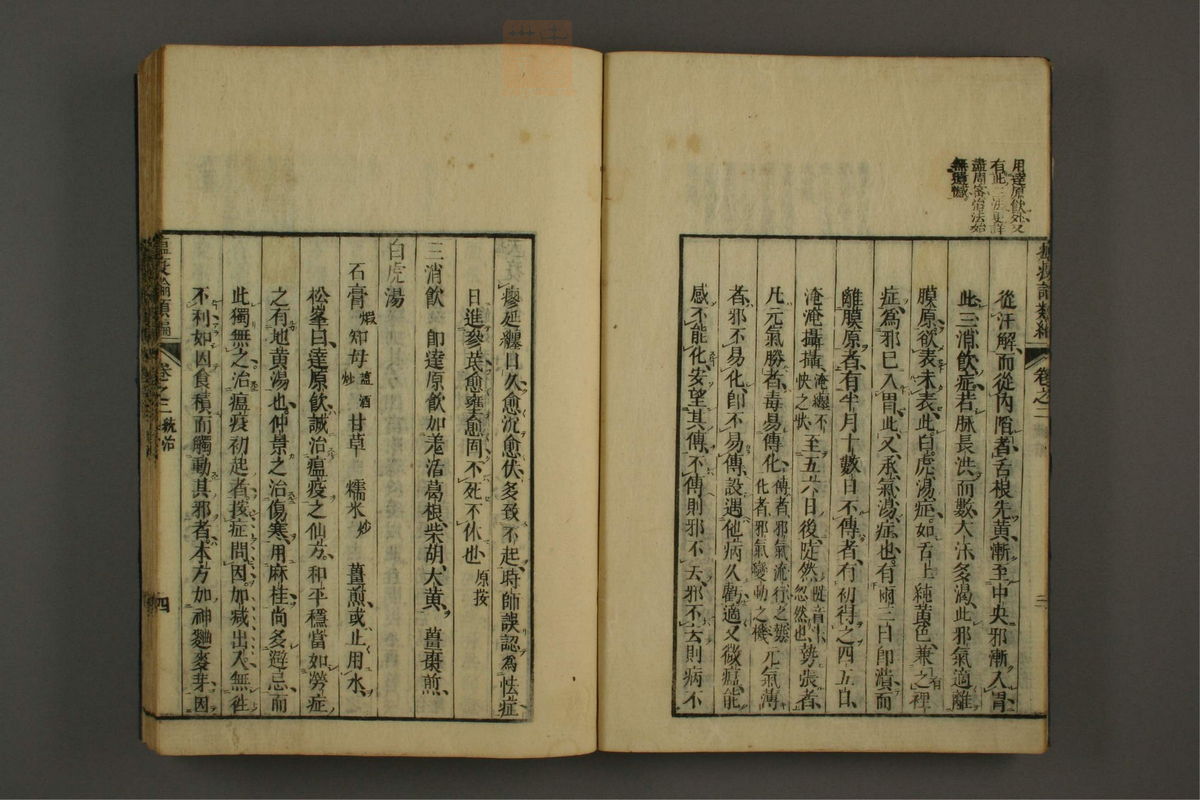 用達原飲处又
有此三法更詳
盡周密治法始
無遺憾
卷之三
三
從汗解而從內陷者舌根先黃漸至中央邪漸入胃
此三消飲症若脉長洪而數大汗多渴此邪氣適離
膜原欲表未表此白虎湯症如舌上純黃色兼之裡
症為邪已入胃此又承氣湯症也有兩三日即潰而
離膜原者有半月十數日不傳者有初得之四五日
淹淹攝攝淹纏不快之狀至五六日後陡然忽然也勢張者
凡元氣勝者毒易傳化傳者邪氣流行之機化者邪氣變動之機元氣薄
者邪不易化即不易傳設遇他病久虧適又微瘟能
感不能化安望其傳不傳則邪不去邪不去則病不
瘳延纏日久愈沉愈伏多致不起時師誤認為怯症
日進參芪愈壅愈固不死不休也原按
三消飲 即達原飲加羗活葛根柴胡大黃 薑棗煎
白虎湯
石膏煅 知母鹽酒炒 甘草 糯米炒 薑煎或止用水
松峯曰達原飲誠治瘟疫之仙方和平穩當如勞症
之有地黃湯也仲景之治傷寒用麻桂尚多避忌而
此獨無之治瘟疫初起者按症問因加减出入無往
不利如因食積而觸動其邪者本方加神麯麥芽因
瘟疫論類編
卷之三 統治
四